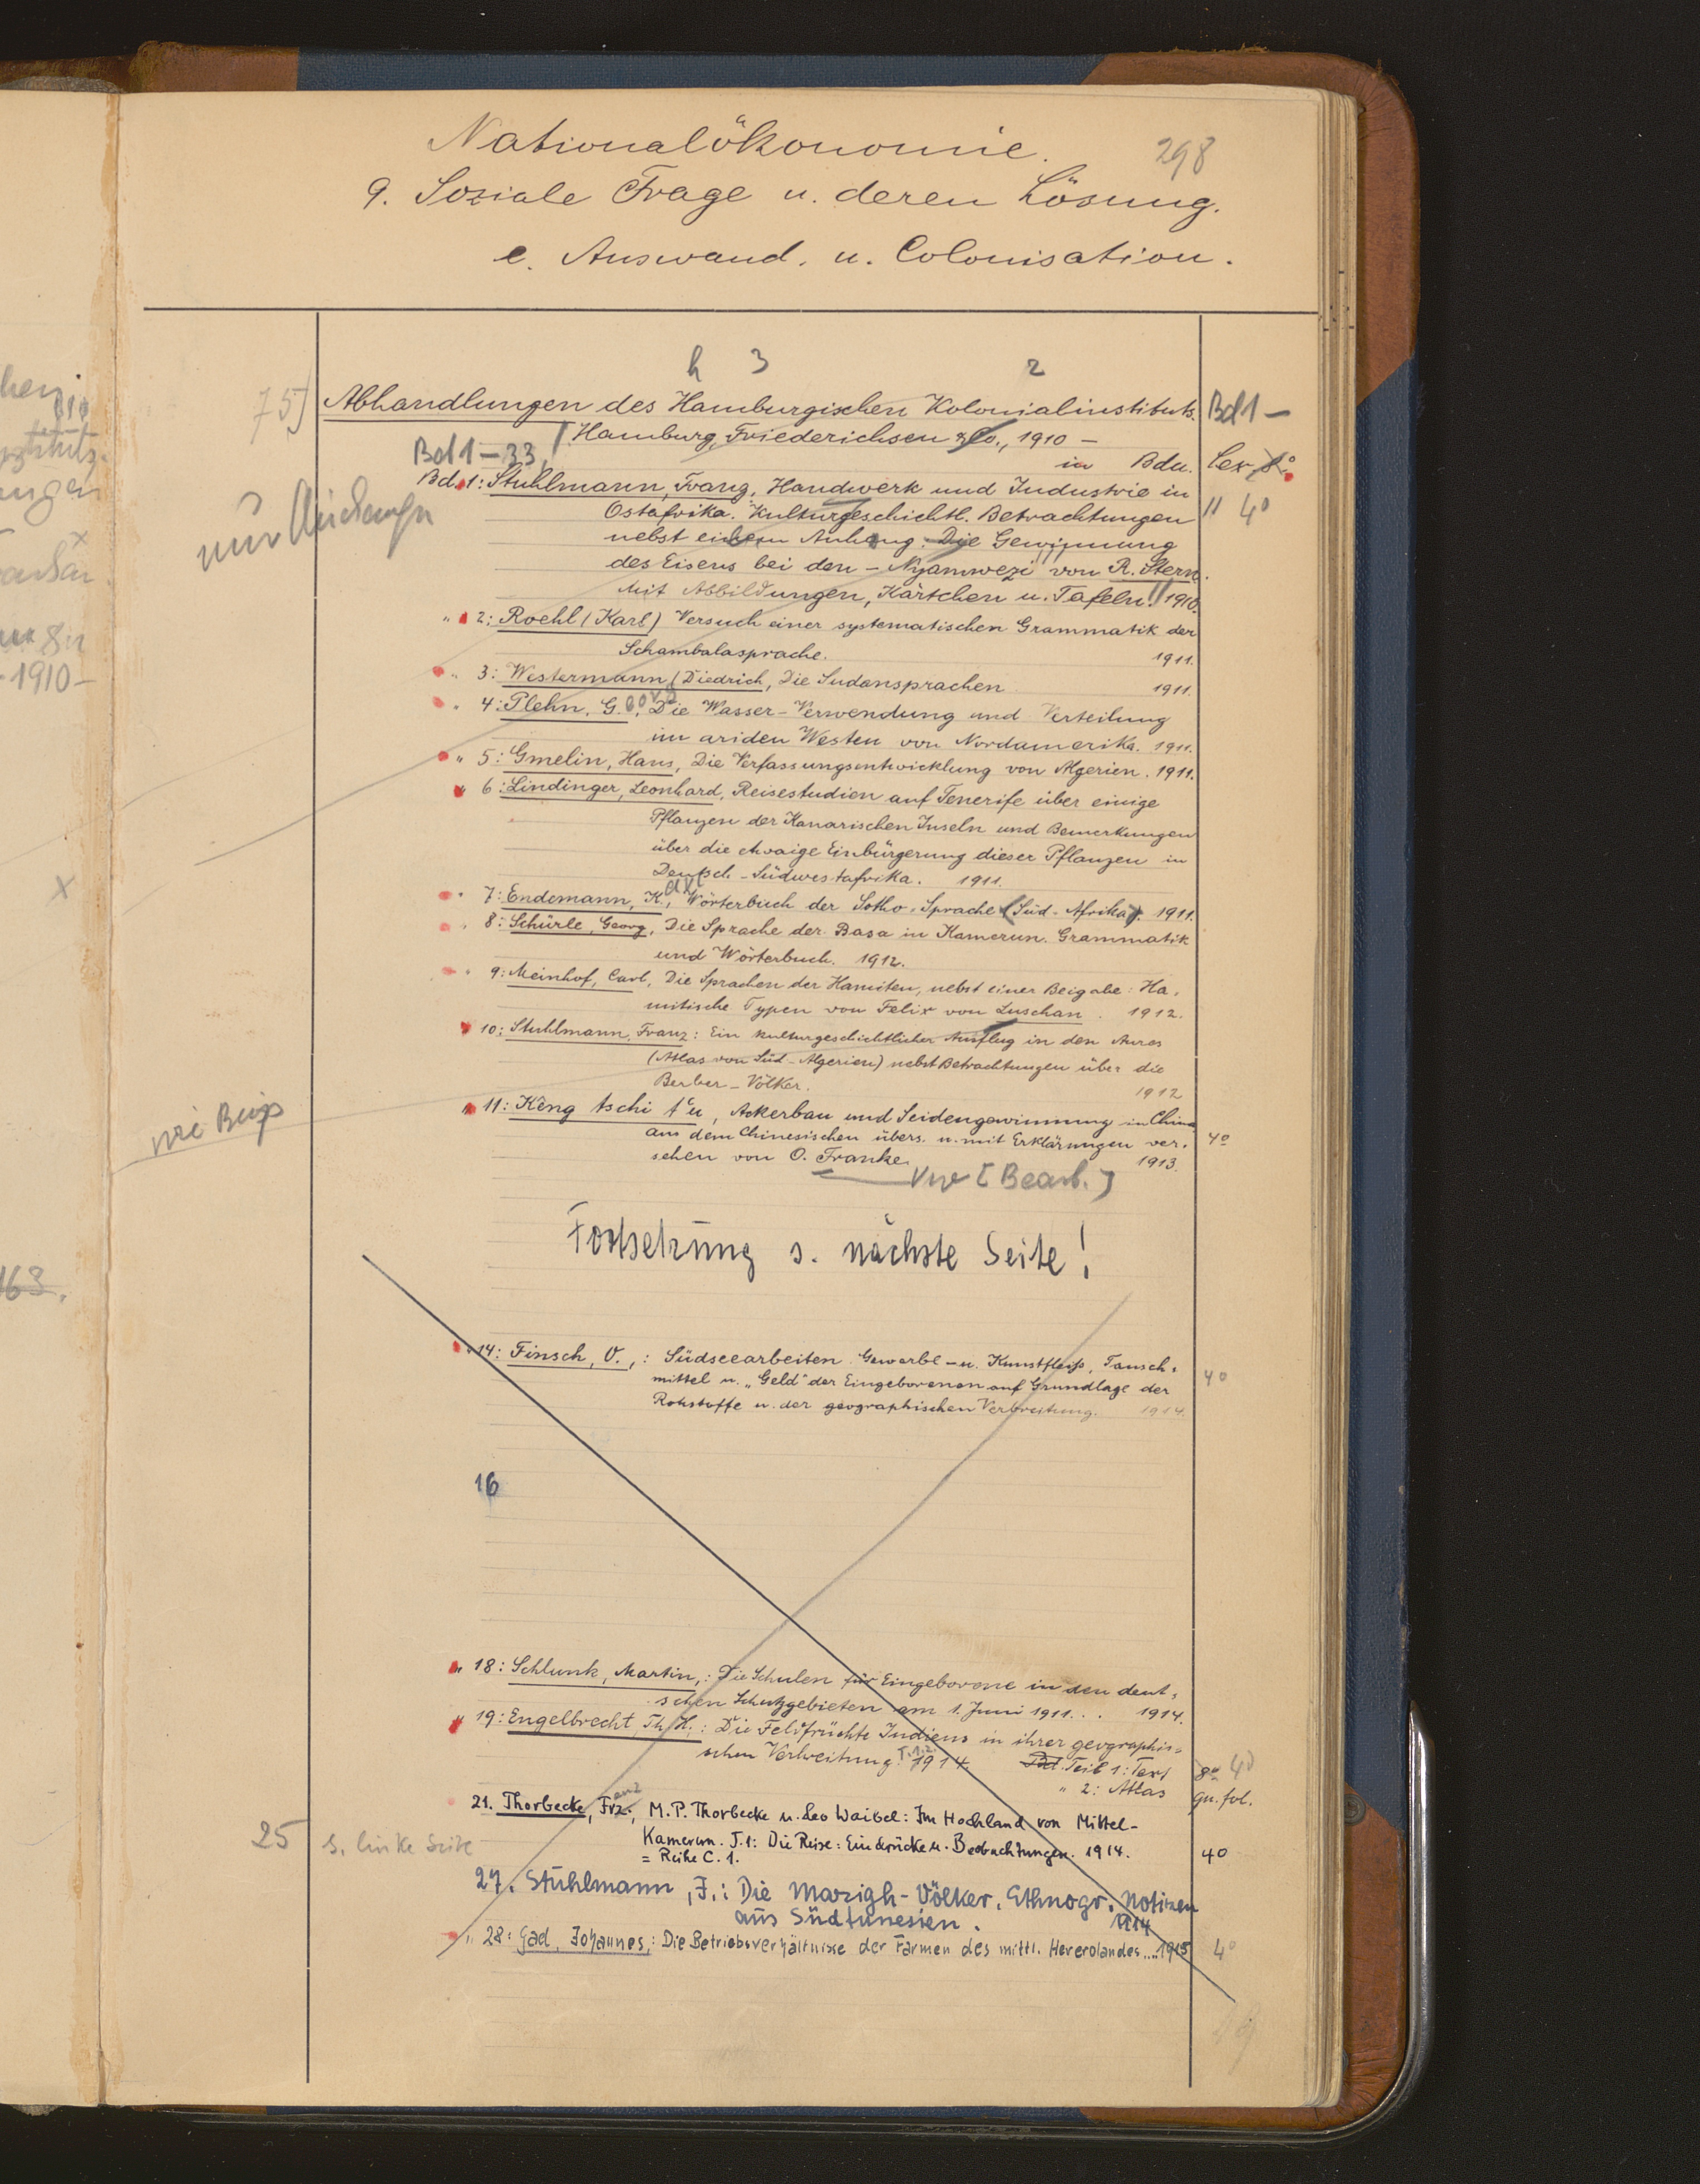 Nationalökonomie.
298
9. Soziale Frage u. deren Lösung.
e. Auswand. u. Colonisation.
h 3 2
75)
Abhandlungen des Hamburgischen Kolonialinstituts.
Bd 1 —
Hamburg, Friederichsen & Co., 1910 —
Bd 1 — 33,
in Bdn.
Lex. 8°
Bd. 1: Stuhlmann, Franz, Handwerk und Industrie in
Ostafrika. Kulturgeschichtl. Betrachtungen
" 4°
nebst einem Anhang: Die Gewinnung
des Eisens bei den – Nyamwezi von R. Stern.
Mit Abbildungen, Kärtchen u. Tafeln. 1910.
" 2: Roehl (Karl) Versuch einer systematischen Grammatik der
Schambalasprache. 1911.
" 3: Westermann (Diedrich, Die Sudansprachen 1911.
" 4: Plehn, G., Die Wasser-Verwendung und Verteilung
im ariden Westen von Nordamerika. 1911.
" 5: Gmelin, Hans, Die Verfassungsentwicklung von Algerien. 1911.
" 6: Lindinger, Leonhard, Reisestudien auf Tenerife über einige
Pflanzen der Kanarischen Inseln und Bemerkungen
über die etwaige Einbürgerung dieser Pflanzen in
Deutsch-Südwestafrika. 1911.
" 7: Endemann, K., Wörterbuch der Sotho-Sprache (Süd-Afrika). 1911.
" 8: Schürle, Georg, Die Sprache der Basa in Kamerun. Grammatik
und Wörterbuch. 1912.
" 9: Meinhof, Carl, Die Sprachen der Hamiten, nebst einer Beigabe: Ha-
mitische Typen von Felix von Luschan. 1912.
" 10: Stuhlmann, Franz: Ein kulturgeschichtlicher Ausflug in den Aures
(Atlas von Süd-Algerien) nebst Betrachtungen über die
Berber-Völker. 1912
" 11: Kêng tschi t'u, Ackerbau und Seidengewinnung in China
aus dem Chinesischen übers. u. mit Erklärungen ver-
4°
sehen von O. Franke. 1913.
Vw [Bearb.]
Fortsetzung s. nächste Seite!
" 14: Finsch, O.,: Südseearbeiten. Gewerbe- u. Kunstfleiß, Tausch-
mittel u. „Geld" der Eingeborenen auf Grundlage der
4°
Rohstoffe u. der geographischen Verbreitung. 1914.
16
" 18: Schlunk, Martin,: Die Schulen für Eingeborene in den deut-
schen Schutzgebieten am 1. Juni 1911... 1914.
" 19: Engelbrecht, Th. H.,: Die Feldfrüchte Indiens in ihrer geographi-
schen Verbreitung. T. 1.2. 1914. Bd. Teil 1: Text
8° 4°
" 2: Atlas
qu. fol.
21. Thorbecke, Frz., M. P. Thorbecke u. Leo Waibel: Im Hochland von Mittel-
Kamerun. T. 1: Die Reise: Eindrücke u. Beobachtungen. 1914.
25
s. linke Seite
= Reihe C. 1.
4°
27. Stuhlmann, F.: Die Mazigh-Völker. Ethnogr. Notizen
aus Südtunesien. 1914
" 28: Gad, Johannes,: Die Betriebsverhältnisse der Farmen des mittl. Hererolandes.... 1915
4°
-1910-
163.